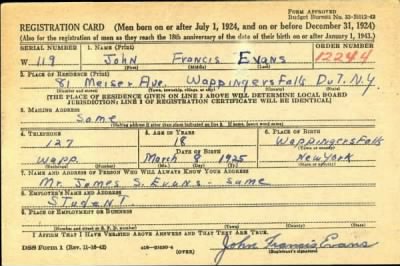 FORM APPROVED
Budget Bureau No. 33-R012-42
REGISTRATION CARD (Men born on or after July 1, 1924, and on or before December 31, 1924)
(Also for the registration of men as they reach the 18th anniversary of the date of their birth on or after January 1, 1943.)
SERIAL NUMBER 1. NAME (Print) ORDER NUMBER
W 119 John Francis Evans 12244
(First) (Middle) (Last)
2. PLACE OF RESIDENCE (Print)
81 Meiser Ave. Wappingers Falls Dut. N.Y
(Number and street) (Town, township, village, or city) (County) (State)
[THE PLACE OF RESIDENCE GIVEN ON LINE 2 ABOVE WILL DETERMINE LOCAL BOARD
JURISDICTION; LINE 2 OF REGISTRATION CERTIFICATE WILL BE IDENTICAL]
3. MAILING ADDRESS
Same
[Mailing address if other than place indicated on line 2. If same, insert word same]
4. TELEPHONE 5. AGE IN YEARS 6. PLACE OF BIRTH
127 18 Wappingers Falls
DATE OF BIRTH (Town or county)
Wapp. March 8 1925 New York
(Exchange) (Number) (Mo.) (Day) (Yr.) (State or country)
7. NAME AND ADDRESS OF PERSON WHO WILL ALWAYS KNOW YOUR ADDRESS
Mr. James S. Evans - Same
8. EMPLOYER'S NAME AND ADDRESS
STudenT
9. PLACE OF EMPLOYMENT OR BUSINESS
(Number and street or R. F. D. number) (Town) (County) (State)
I AFFIRM THAT I HAVE VERIFIED ABOVE ANSWERS AND THAT THEY ARE TRUE.
DSS Form 1 (Rev. 11-16-42) (OVER) John Francis Evans
(Registrant's signature)